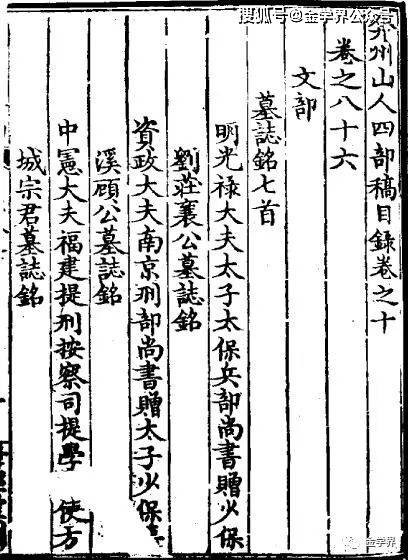 搜狐号@金学界公众号
弇州山人四部稿目錄卷之十
卷之八十六
文部
墓誌銘七首
明光禄大夫太子太保兵部尚書贈少保
劉莊襄公墓誌銘
資政大夫南京刑部尚書贈太子少保
溪顧公墓誌銘
中憲大夫福建提刑按察司提學 使方
城宗君墓誌銘
金学界